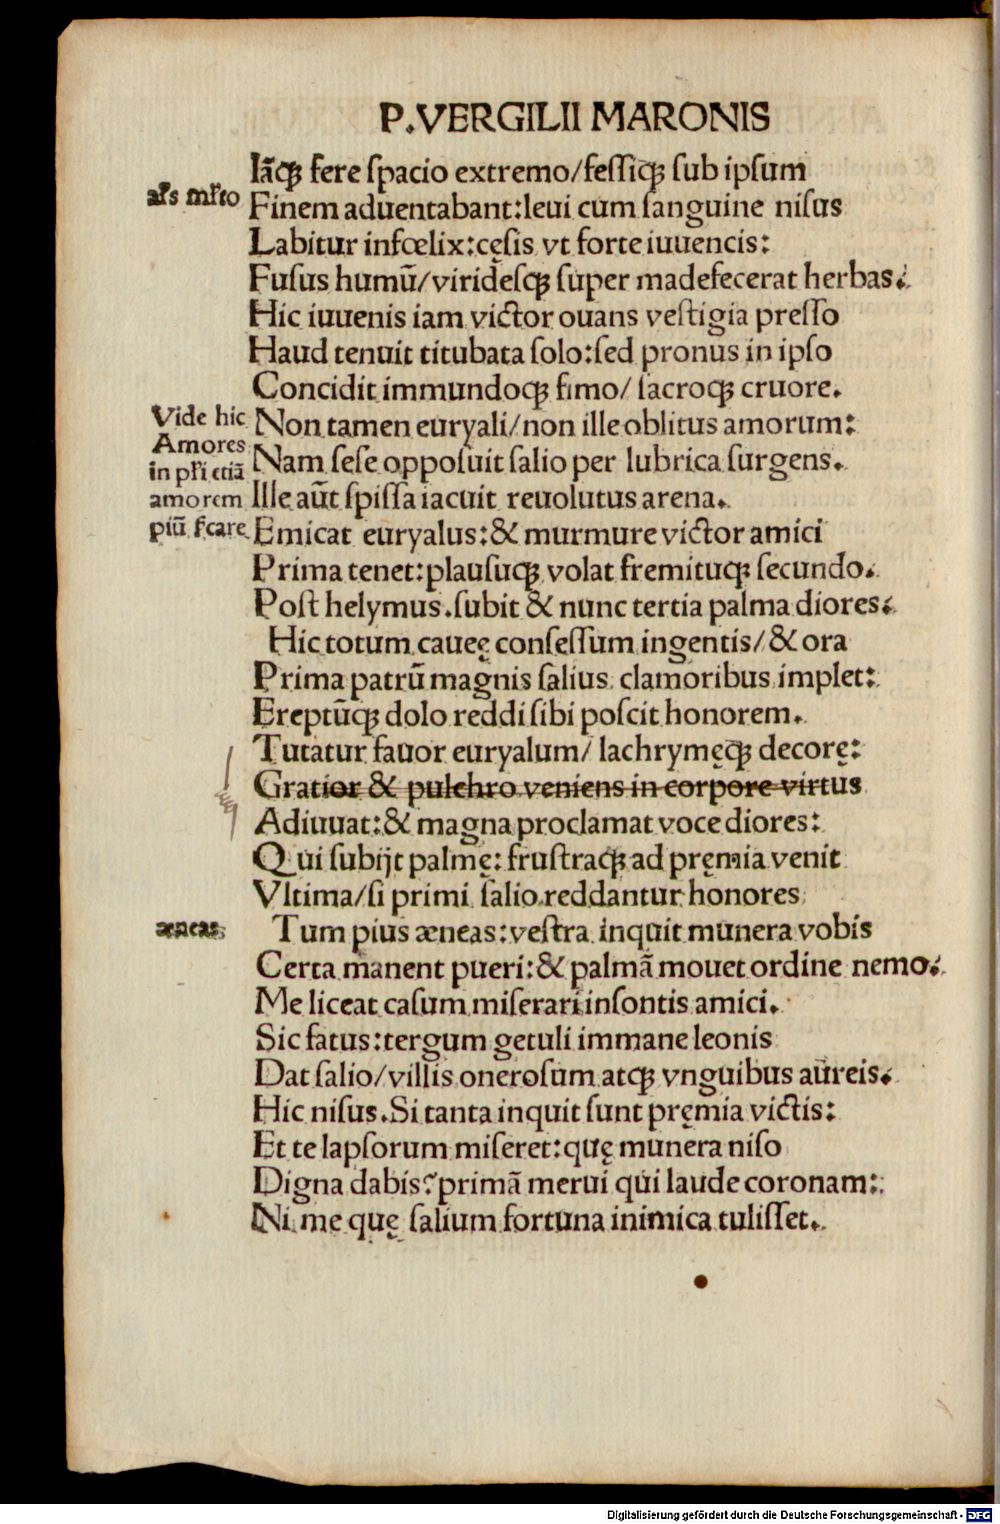 P.VERGILII MARONIS
Iāqꝫ fere ſpacio extremo/feſſiqꝫ ſub ipſum
Finem aduentabant:leui cum ſanguine niſus
Labitur infœlix:cęſis vt forte iuuencis:
Fuſus humū/viridesqꝫ ſuper madefecerat herbas.
Hic iuuenis iam victor ouans veſtigia preſſo
Haud tenuit titubata ſolo:ſed pronus in ipſo
Concidit immundoqꝫ fimo/ſacroqꝫ cruore.
Vide hic
Amores
in při etiā
amorem
piū
Non tamen euryali/non ille oblitus amorum:
Nam ſeſe oppoſuit ſalio per lubrica ſurgens.
Ille aūt ſpiſſa iacuit reuolutus arena.
Emicat euryalus:& murmure victor amici
Prima tenet:plauſuqꝫ volat fremituqꝫ ſecundo.
Poſt helymus.ſubit & nunc tertia palma diores.
Hic totum caueę conſeſſum ingentis/& ora
Prima patrū magnis ſalius clamoribus implet:
Ereptūqꝫ dolo reddi ſibi poſcit honorem.
Tutatur fauor euryalum/ lachrymęqꝫ decorę:
Gratior & pulchro veniens in corpore virtus
Adiuuat:& magna proclamat voce diores:
Qui ſubijt palmę: fruſtraqꝫ ad pręmia venit
Vltima/ſi primi ſalio reddantur honores
æneas
Tum pius æneas:veſtra inquit munera vobis
Certa manent pueri:& palmā mouet ordine nemo.
Me liceat caſum miſerari inſontis amici.
Sic fatus:tergum getuli immane leonis
Dat ſalio/villis oneroſum atqꝫ vnguibus aureis.
Hic niſus.Si tanta inquit ſunt pręmia victis:
Et te lapſorum miſeret:quę munera niſo
Digna dabis?primā merui qui laude coronam:
Ni me quę ſalium fortuna inimica tuliſſet.
Digitalisierung gefördert durch die Deutsche Forschungsgemeinschaft - DFG